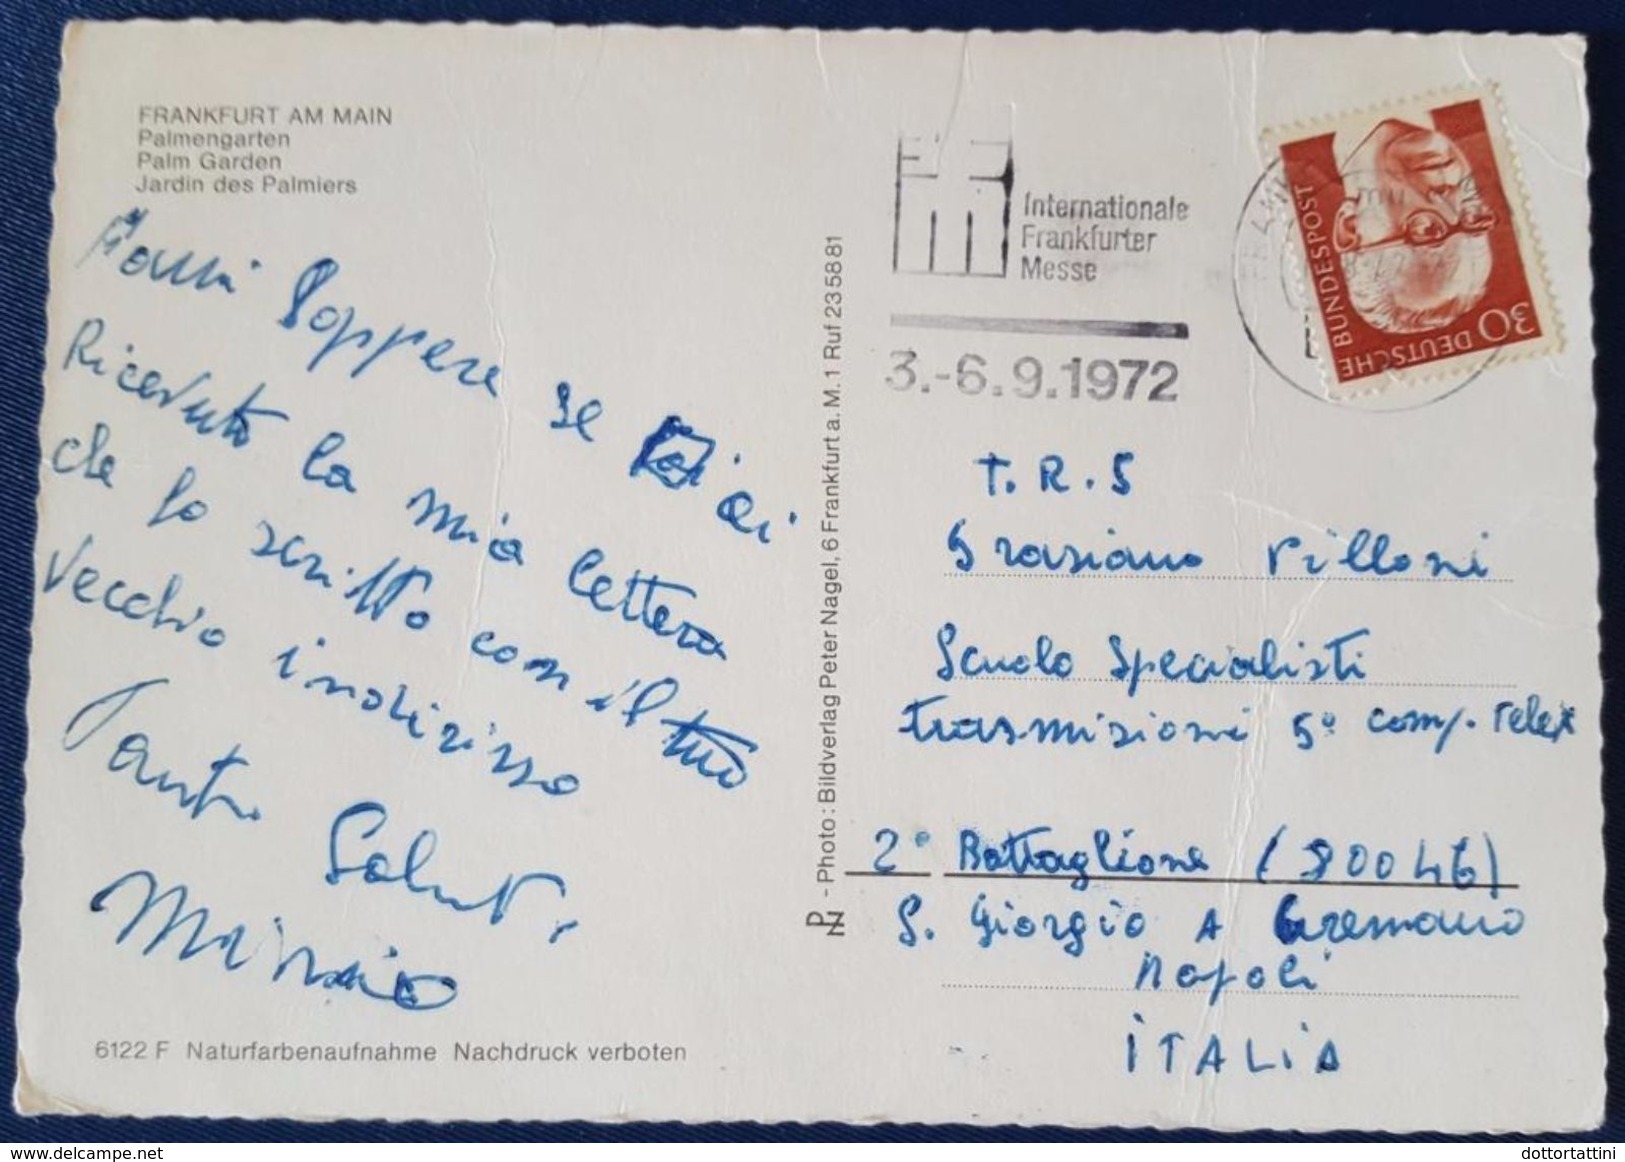 FRANKFURT AM MAIN
Palmengarten
Palm Garden
Jardin des Palmiers
Sappere se ai
Ricevuto la mia lettera
che lo scritto con il tuo
Vecchio indirizzo
Tanti Saluti
6122 F Naturfarbenaufnahme Nachdruck verboten
- Photo: Bildverlag Peter Nagel, 6 Frankfurt a. M. 1 Ruf 23 58 81
Internationale
Frankfurter
Messe
3.-6.9.1972
DEUTSCHE BUNDESPOST
30
T.R.S
Graziano Villoni
Scuola Specialisti
trasmizioni 5° comp. Telex
2° Battaglione (80046)
S. Giorgio A Cremano
Napoli
ITALIA
delcampe.net
dottortattini